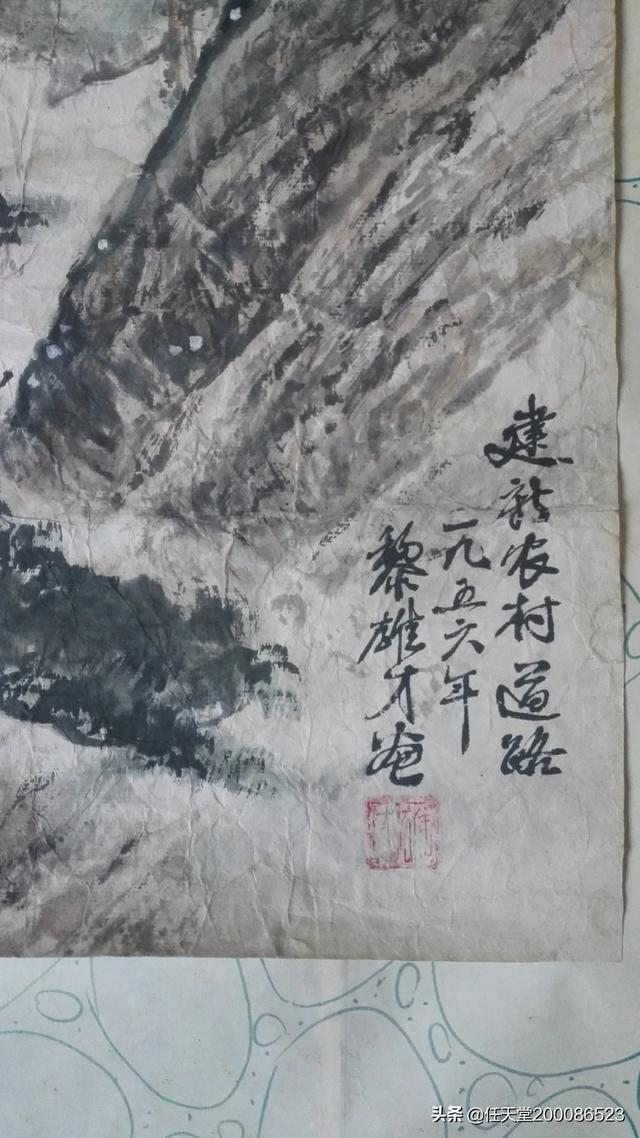 建新农村道路
一九五六年
黎雄才画
雄才
头条 @任天堂200086523